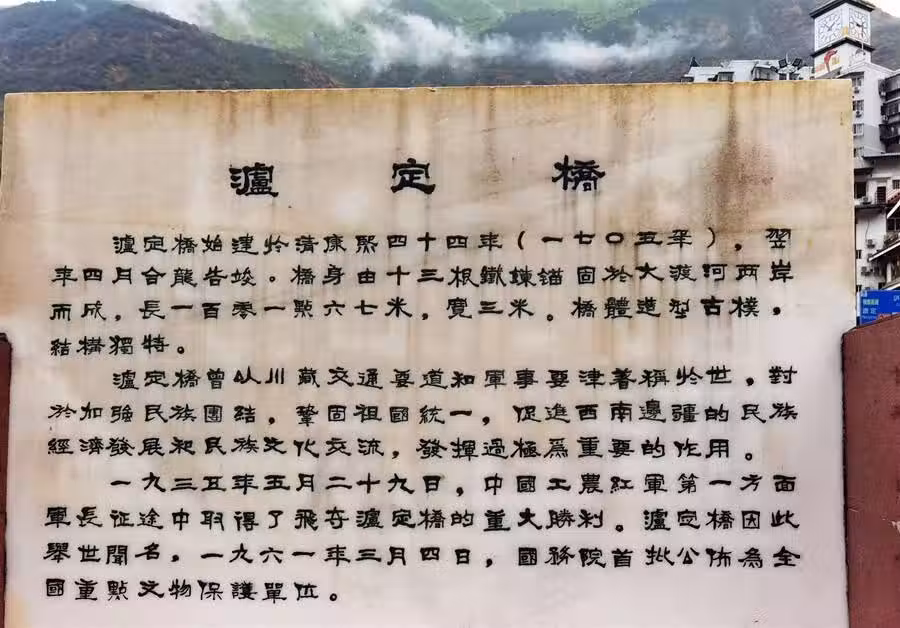 瀘定橋
瀘定橋始建於清康熙四十四年（一七〇五年），翌
年四月合龍告竣。橋身由十三根鐵鍊錨固於大渡河兩岸
而成，長一百零一點六七米，寬三米。橋體造型古樸，
結構獨特。
瀘定橋曾以川藏交通要道和軍事要津著稱於世，對
於加強民族團結，鞏固祖國統一，促進西南邊疆的民族
經濟發展和民族文化交流，發揮過極為重要的作用。
一九三五年五月二十九日，中國工農紅軍第一方面
軍長征途中取得了飛奪瀘定橋的重大勝利。瀘定橋因此
舉世聞名，一九六一年三月四日，國務院首批公佈為全
國重點文物保護單位。